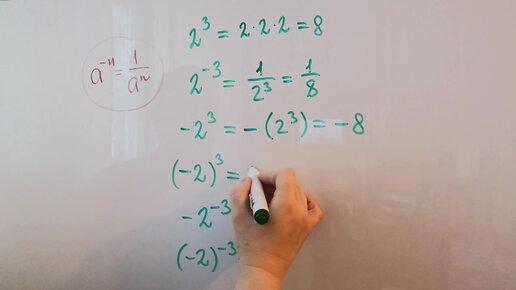 a⁻ⁿ = 1/aⁿ
2³ = 2·2·2 = 8
2⁻³ = 1/2³ = 1/8
-2³ = -(2³) = -8
(-2)³ =
-2⁻³
(-2)⁻³